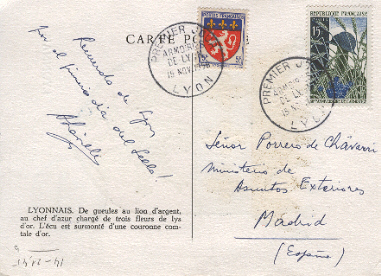 CARTE PO
RÉPUBLIQUE FRANÇAISE
15F
PREMIER JOUR
ARMOIRIES
DE-LYON
15 NOV. 1958
LYON
PREMIER JOUR
DE-LY
LYON
Recuerdo de Lyon
por el primer día del sello!
Señor Porrero de Chávarri
Ministerio de
Asuntos Exteriores
Madrid
(España)
LYONNAIS. De gueules au lion d'argent,
au chef d'azur chargé de trois fleurs de lys
d'or. L'écu est surmonté d'une couronne com-
tale d'or.